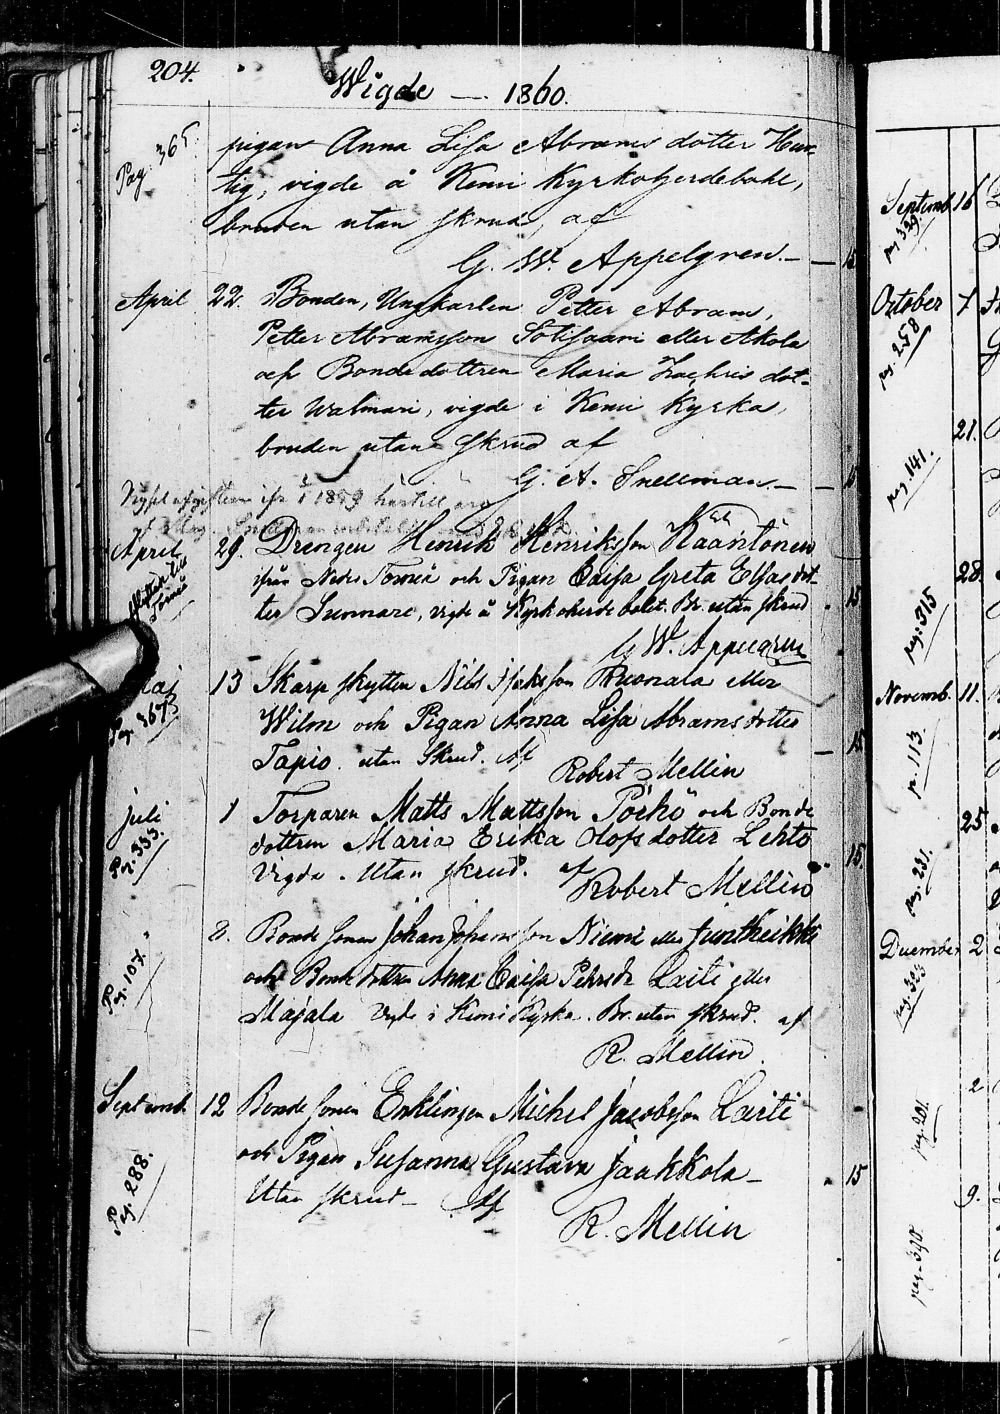 204.
Wigde — 1860.
Pag: 365.
pigan Anna Lisa Abrams dotter Hur-
tig, vigde å Kemi Kyrkoherdebohl,
bruden utan skrud, af
G. W. Appelgren. — 15
April 22. Bonden, Ungkarlen Petter Abram,
Petter Abramsson Sotisaari eller Akola
och Bondedottren Maria Zachris dot-
ter Walmari, vigde i Kemi Kyrka,
bruden utan skrud af
G. A. Snellman. — 15
1859 härtill
April 29. Drengen Henrik Henriksson Kaantönen
flyttar till Torneå
ifrån Neder Torneå och Pigan Caisa Greta Elfasdot-
ter Sunnare, vigde å Kyrkoherde bolet. Br. utan skrud 15
G W. Appelgren
Maj 13 Skarpskytten Nils Isaksson Ruonala eller
Pag. 367
Wilen och Pigan Anna Lisa Abramsdotter
Tapio. utan Skrud. Af 15
Robert Mellin
Juli 1 Torparen Matts Mattsson Poikö och Bonde
Pag. 333.
dottren Maria Erika Olofsdotter Lehto
Vigde. Utan skrud. af 15.
Robert Mellin
8. Bonde sonen Johan Johansson Niemi eller Juntheikki
Pag. 107.
och Bonde dottren Anna Caisa Petersdr Laiti eller
Majala Vigde i Kemi Kyrka. Br. utan skrud. af
R. Mellin.
Septemb. 12 Bonde sonen Enklingen Michel Jacobsson Laiti
och Pigan Susanna Gustava Jaakkola —
Pag. 288.
Utan skrud — Af 15
R. Mellin
Septemb. 16
pag 329.
October 7
pag. 258
21.
pag. 141.
28.
pag: 315
Novemb. 11.
p. 113.
25
pag. 231.
December 2
pag. 323
2
pag. 201.
9.
pag. 390